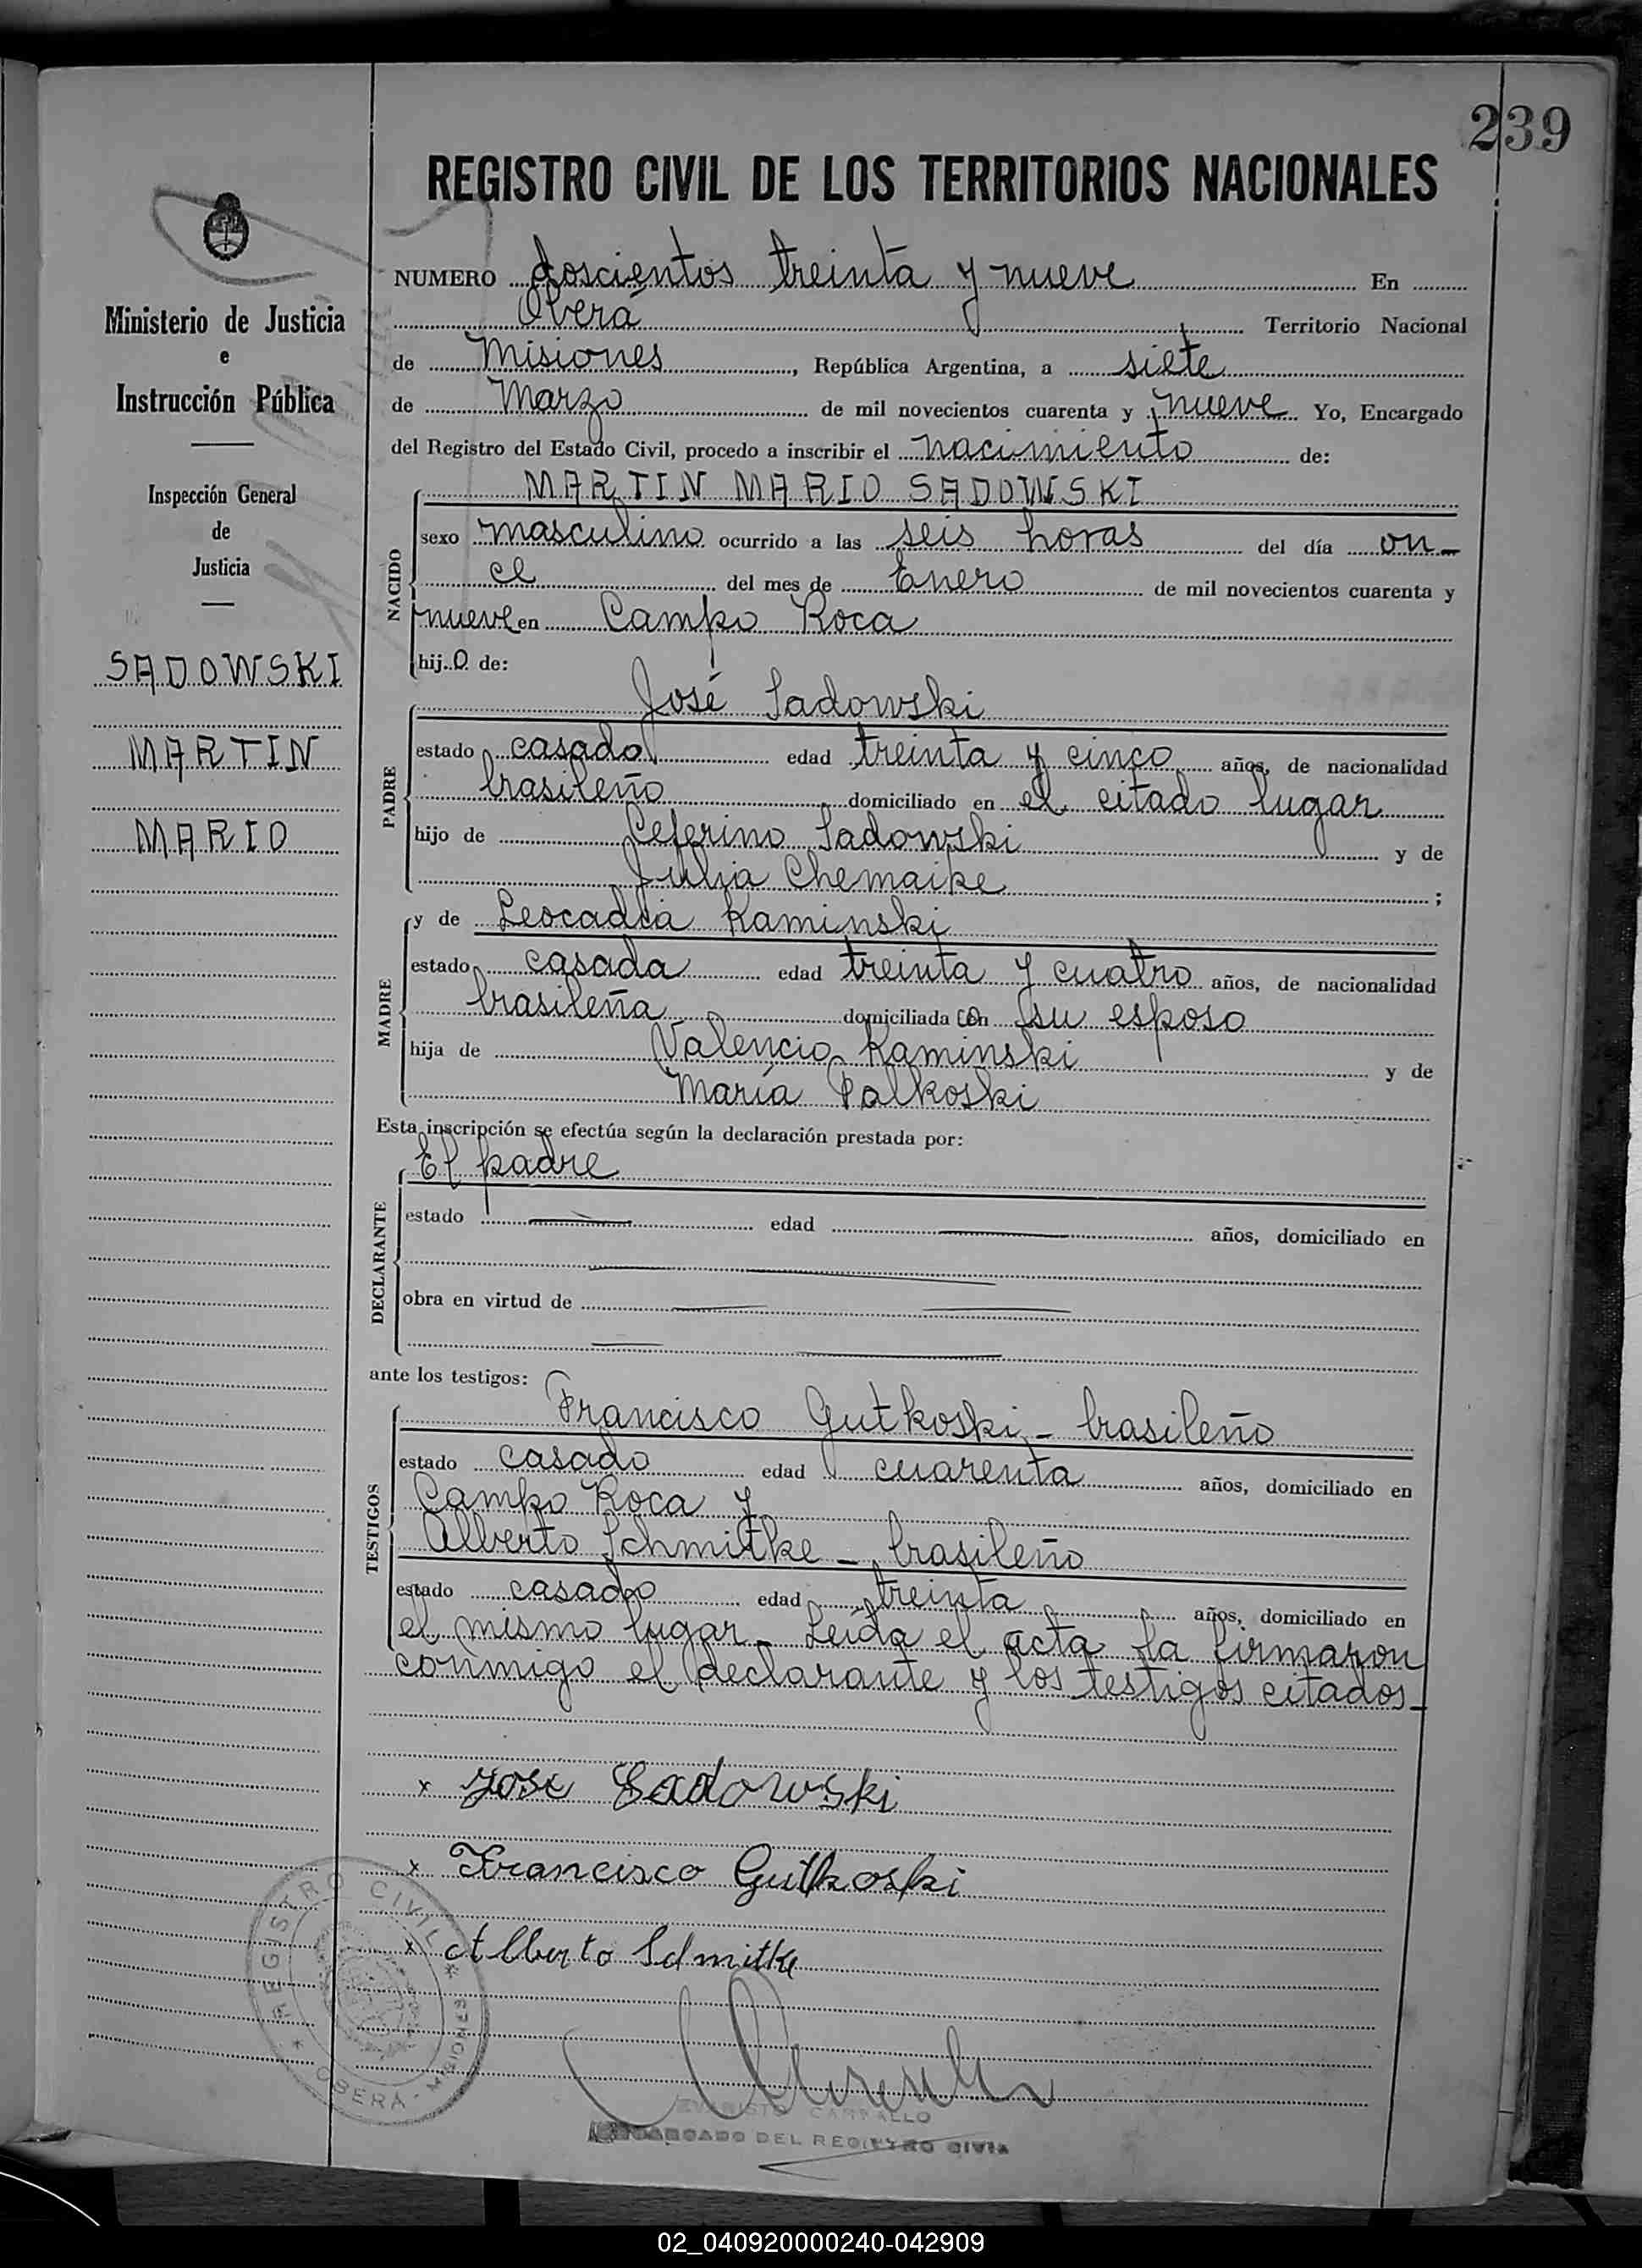 239
REGISTRO CIVIL DE LOS TERRITORIOS NACIONALES
Ministerio de Justicia
e
Instrucción Pública
Inspección General
de
Justicia
SADOWSKI
MARTIN
MARIO
NUMERO doscientos treinta y nueve En
Oberá Territorio Nacional
de Misiones, República Argentina, a siete
de Marzo de mil novecientos cuarenta y nueve Yo, Encargado
del Registro del Estado Civil, procedo a inscribir el nacimiento de:
NACIDO
MARTIN MARIO SADOWSKI
sexo masculino ocurrido a las seis horas del día on-
ce del mes de Enero de mil novecientos cuarenta y
nueve en Campo Roca
hijo de:
PADRE
José Sadowski
estado casado edad treinta y cinco años, de nacionalidad
brasileño domiciliado en el citado lugar
hijo de Ceferino Sadowski y de
Julia Chemaike ;
MADRE
y de Leocadia Kaminski
estado casada edad treinta y cuatro años, de nacionalidad
brasileña domiciliada con su esposo
hija de Valencio Kaminski y de
María Palkoski
Esta inscripción se efectúa según la declaración prestada por:
DECLARANTE
El padre
estado edad años, domiciliado en
obra en virtud de
ante los testigos:
TESTIGOS
Francisco Gutkoski - brasileño
estado casado edad cuarenta años, domiciliado en
Campo Roca y
Alberto Schmitke - brasileño
estado casado edad treinta años, domiciliado en
el mismo lugar - Leída el acta la firmaron
conmigo el declarante y los testigos citados -
x Jose Sadowski
x Francisco Gutkoski
x Alberto Schmitke
REGISTRO CIVIL * OBERÁ - MISIONES *
CARBALLO
ENCARGADO DEL REGISTRO CIVIL
02_040920000240-042909